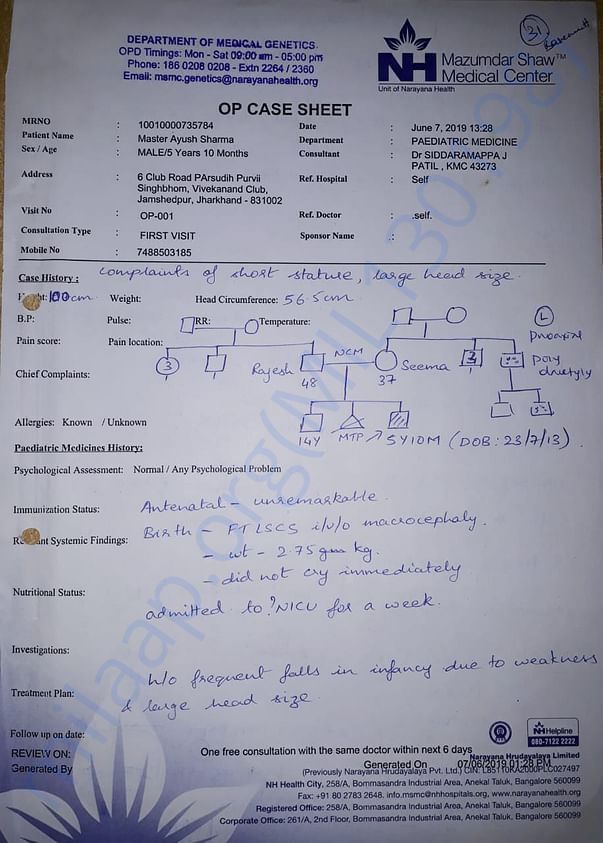 DEPARTMENT OF MEDICAL GENETICS.
OPD Timings: Mon - Sat 09:00 am - 05:00 pm
Phone: 186 0208 0208 - Extn 2264 / 2360
Email: msmc.genetics@narayanahealth.org
31
NH Mazumdar Shaw™
Medical Center
Unit of Narayana Health
OP CASE SHEET
MRNO : 10010000735784 Date : June 7, 2019 13:28
Patient Name : Master Ayush Sharma Department : PAEDIATRIC MEDICINE
Sex / Age : MALE/5 Years 10 Months Consultant : Dr SIDDARAMAPPA J
PATIL , KMC 43273
Address : 6 Club Road PArsudih Purvii Ref. Hospital : Self
Singhbhom, Vivekanand Club,
Jamshedpur, Jharkhand - 831002
Visit No : OP-001 Ref. Doctor : .self.
Consultation Type : FIRST VISIT Sponsor Name .:
Mobile No : 7488503185
Case History : complaints of short stature, large head size.
100cm Weight: Head Circumference: 56.5cm
B.P: Pulse: RR: Temperature:
L
Pain score: Pain location:
poly
dactyly
3 Rajesh NCM Seema 2
48 37
Chief Complaints:
Allergies: Known / Unknown
14Y MTP 5Y10M (DOB: 23/7/13).
Paediatric Medicines History:
Psychological Assessment: Normal / Any Psychological Problem
Antenatal - unremarkable.
Immunization Status:
Birth - FTLSCS i/v/o macrocephaly.
Systemic Findings:
- wt - 2.75 kg.
- did not cry immediately
Nutritional Status:
admitted to ?NICU for a week.
Investigations:
h/o frequent falls in infancy due to weakness
Treatment Plan:
& large head size.
Follow up on date:
NH Helpline
080-7122 2222
REVIEW ON: One free consultation with the same doctor within next 6 days
Narayana Hrudayalaya Limited
Generated By Generated On 07/06/2019 01:28 PM
(Previously Narayana Hrudayalaya Pvt. Ltd.) CIN: L85110KA2000PLC027497
NH Health City, 258/A, Bommasandra Industrial Area, Anekal Taluk, Bangalore 560099
Fax: +91 80 2783 2648, info.msmc@nhhospitals.org, www.narayanahealth.org
Registered Office: 258/A, Bommasandra Industrial Area, Anekal Taluk, Bangalore 560099
Corporate Office: 261/A, 2nd Floor, Bommasandra Industrial Area, Anekal Taluk, Bangalore 560099